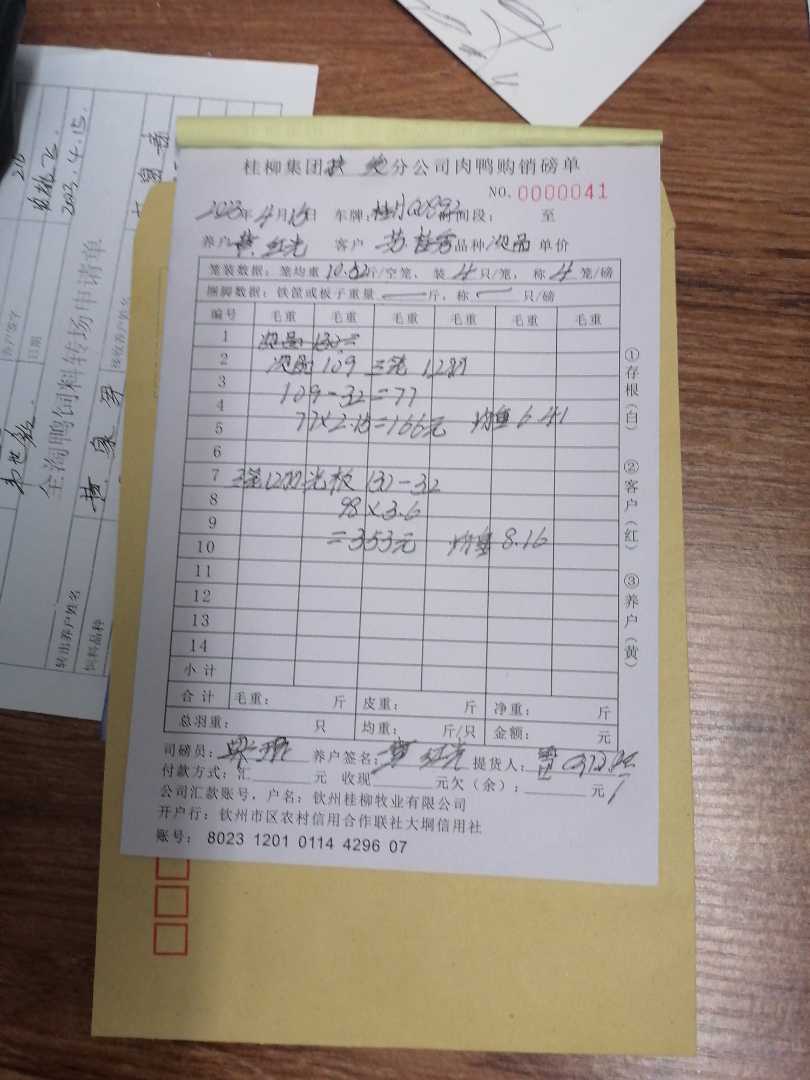 桂柳集团 分公司肉鸭购销磅单
NO. 0000041
2023年4月15日 车牌: 时间段: 至
养户 红光 客户 苏 品种 次品 单价
笼装数据: 笼均重 10.62斤/空笼, 装 4 只/笼, 称 4 笼/磅
捆脚数据: 铁筐或板子重量 — 斤, 称 — 只/磅
编号 毛重 毛重 毛重 毛重 毛重 毛重
1
2 次品 109 三笼 12只
3 109-32=77
4
5 77×2.15=166元 均重 6.41
6
7 三笼12只 光板 130-32
8 98×3.6
9
10 =353元 均重 8.16
11
12
13
14
小计
合计 毛重: 斤 皮重: 斤 净重: 斤
总羽重: 只 均重: 斤/只 金额: 元
司磅员: 养户签名: 红光 提货人:
付款方式: 汇 元 收现 元欠(余): 元
公司汇款账号, 户名: 钦州桂柳牧业有限公司
开户行: 钦州市区农村信用合作联社大垌信用社
账号: 8023 1201 0114 4296 07
①存根(白) ②客户(红) ③养户(黄)
216
2023.4.15.
客户签字
日期
全淘鸭饲料转场申请单
接收养户姓名
转出养户姓名
饲料品种